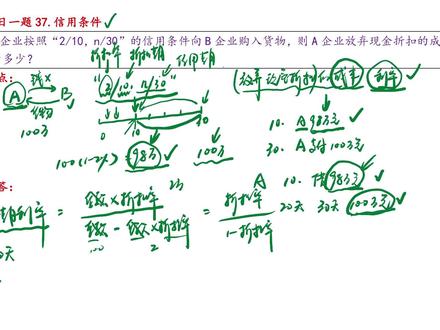 日一题 37.信用条件
企业按照“2/10, n/30”的信用条件向 B 企业购入货物, 则 A 企业放弃现金折扣的成
多少?
点:
折扣率 折扣期 信用期
“2/10, n/30”
(放弃现金折扣)的成本 利率
钱×
A B
货物
100万
0 10 30
10. A 98万元
30. A 支付100万元
100(1-2%) 98万 100万
答:
期利率 = 货款×折扣率 / 货款-货款×折扣率 = 折扣率 / 1-折扣率
100 2
A 10. 借98万元
20天 30天 100万元